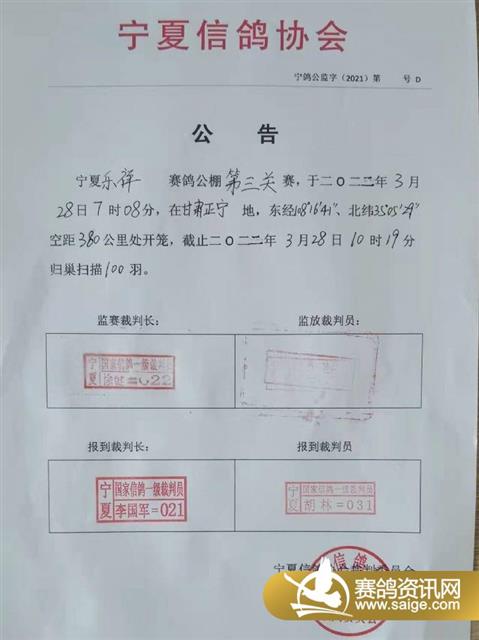 宁夏信鸽协会
宁鸽公监字（2021）第 号 D
公 告
宁夏乐祥 赛鸽公棚第三关赛，于二〇二二年3月
28日7时08分，在甘肃正宁 地，东经108°16′41″、北纬35°05′29″
空距380公里处开笼，截止二〇二二年3月28日10时19分
归巢扫描100羽。
监赛裁判长： 监放裁判员：
宁夏 国家信鸽一级裁判员
=022
报到裁判长： 报到裁判员
宁夏 国家信鸽一级裁判员
李国军=021
宁夏 国家信鸽一级裁判员
胡林=031
宁夏信鸽
赛鸽资讯网
www.saige.com